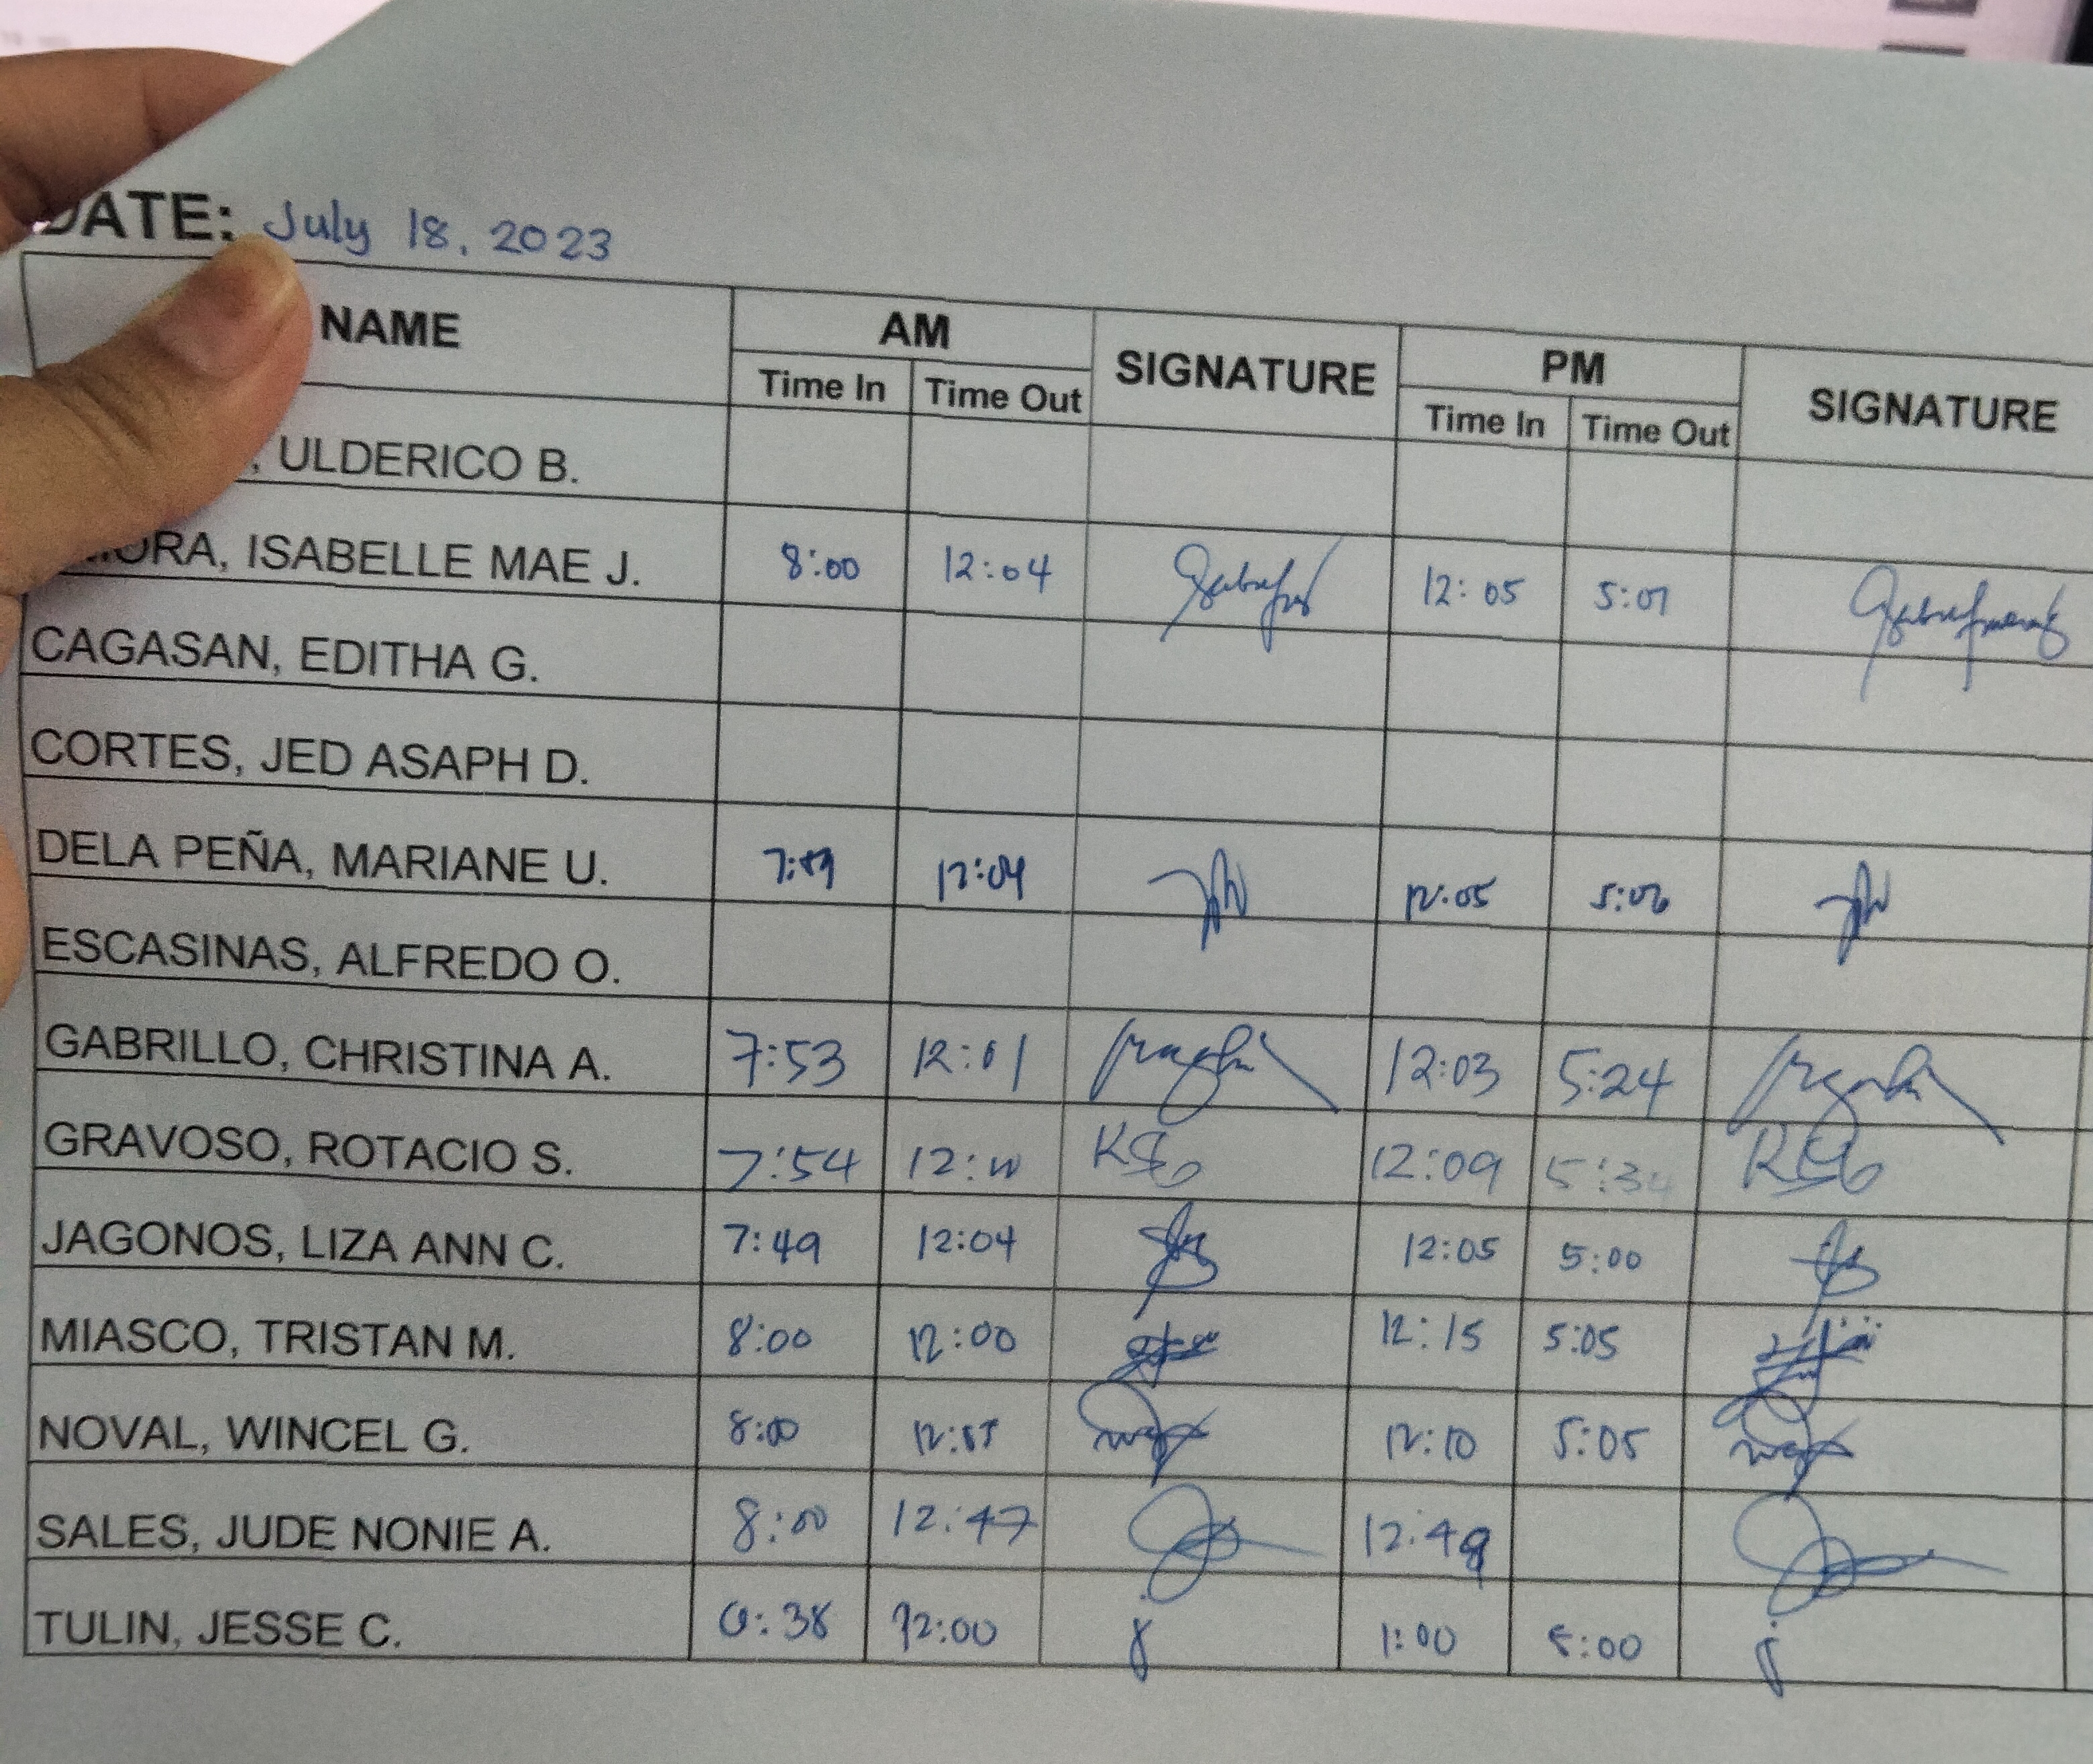 DATE: July 18, 2023
NAME AM SIGNATURE PM SIGNATURE
Time In Time Out Time In Time Out
, ULDERICO B.
ORA, ISABELLE MAE J. 8:00 12:04 12:05 5:07
CAGASAN, EDITHA G.
CORTES, JED ASAPH D.
DELA PEÑA, MARIANE U. 7:59 12:04 12:05 5:06
ESCASINAS, ALFREDO O.
GABRILLO, CHRISTINA A. 7:53 12:01 12:03 5:24
GRAVOSO, ROTACIO S. 7:54 12:09
JAGONOS, LIZA ANN C. 7:49 12:04 12:05 5:00
MIASCO, TRISTAN M. 8:00 12:00 12:15 5:05
NOVAL, WINCEL G. 8:00 12:10 5:05
SALES, JUDE NONIE A. 8:00 12:47 12:49
TULIN, JESSE C. 12:00 1:00 5:00